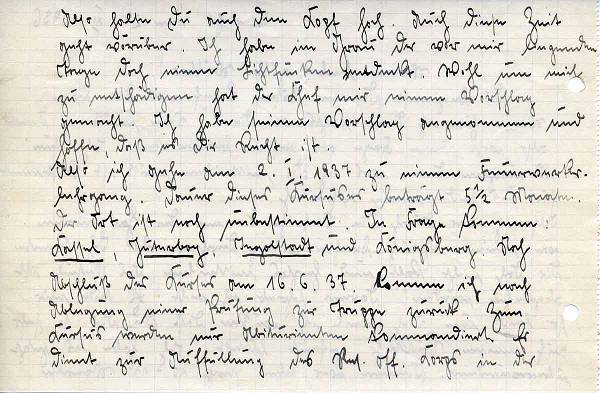 Also halte Du auch den Kopf hoch. Auch diese Zeit
geht vorüber. Ich habe im Grau der vor mir liegenden
Tage doch einen Lichtfunken entdeckt. Wohl um mich
zu entschädigen hat der Chef mir einen Vorschlag
gemacht. Ich habe seinen Vorschlag angenommen und
hoffe, daß es Dir Recht ist.
Also ich gehe am 2. I. 1937 zu einem Feuerwerker-
lehrgang. Dauer dieses Kursuses beträgt 5½ Monate.
Der Ort ist noch unbestimmt. In Frage kommen:
Kassel, Jüterbog, Ingolstadt und Königsberg. Nach
Abschluß des Kurses am 16. 6. 37. komme ich nach
Ablegung einer Prüfung zur Truppe zurück. Zum
Kursus werden nur Abiturienten kommandiert. Er
dient zur Auffüllung des Res. Off. Korps in der